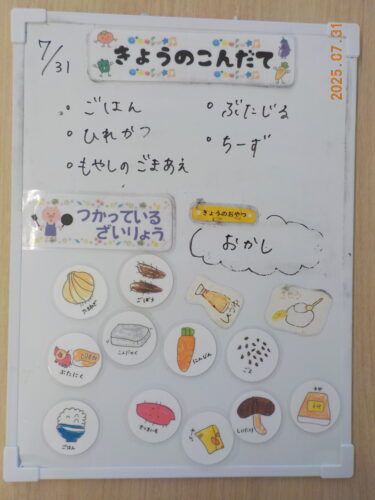 7/31
きょうのこんだて
2025.07.31
。ごはん
。ひれかつ
。もやしのごまあえ
。ぶたじる
。ちーず
つかっている
ざいりょう
きょうのおやつ
おかし
たまねぎ
ごぼう
さとう
ぶたにく
こんにゃく
にんじん
ごま
ごはん
さつまいも
しいたけ
みそ